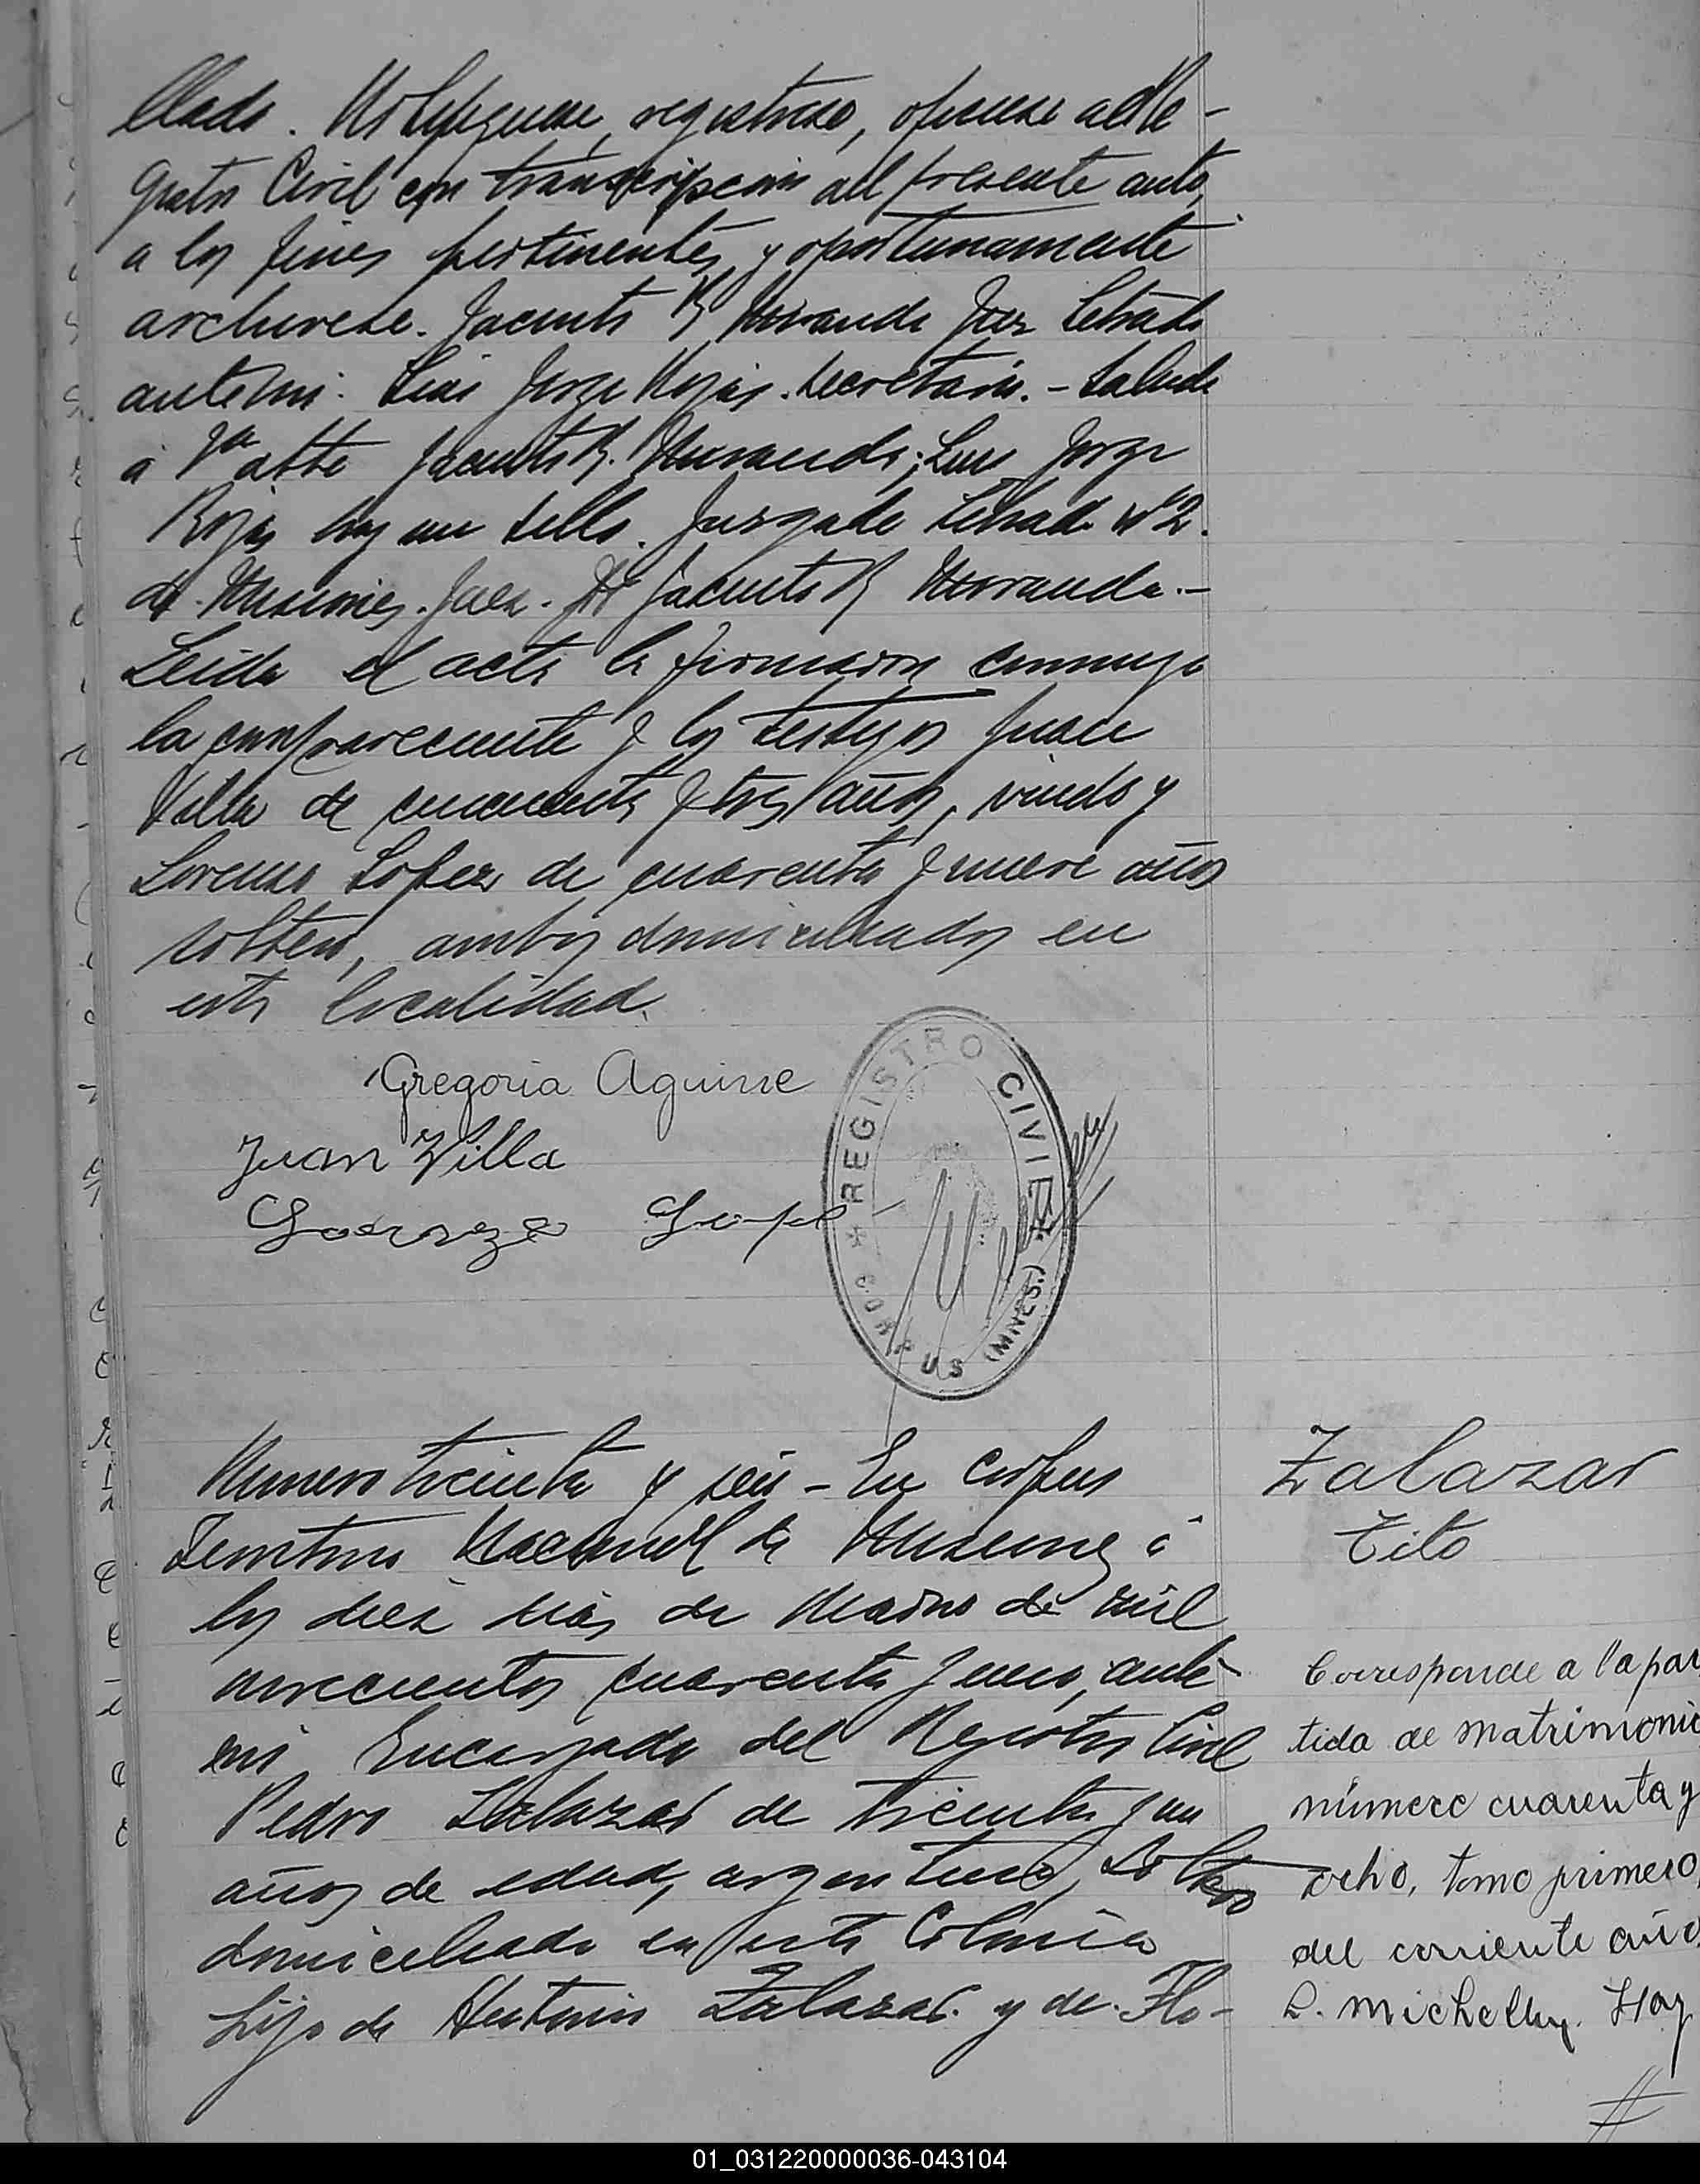 llado. Notifíquese, registrese, ofíciese al Re-
gistro Civil con transcripcion del presente auto,
a los fines pertinentes, y oportunamente
archivese. Jacinto R Miranda Juez Letrado
ante mi: Luis Jorge Rojas. Secretario. - Saluda
á Va atte Jacinto R. Miranda; Luis Jorge
Rojas hay un sello. Juzgado Letrado Nº 2.
de Misiones. Juez. Dr Jacinto R Miranda.-
Leida el acta la firmaron conmigo
la compareciente y los testigos Juan
Villa de cincuenta y tres años, viudo y
Lorenzo Lopez de cuarenta y nueve años
soltero, ambos domiciliados en
esta localidad.
Gregoria Aguirre
Juan Villa
Lorenzo Lope
REGISTRO CIVIL
CORPUS (MNES.)
Numero treinta y seis - En Corpus
Zalazar
Territorio Nacional de Misiones á
Tito
los diez dias de Marzo de mil
novecientos cuarenta y uno, ante
Corresponde a la par
mi Encargado del Registro Civil
tida de matrimonio
Pedro Zalazar de treinta y un
número cuarenta y
años de edad, argentino, soltero
ocho, tomo primero,
domiciliado en esta Colonia
del corriente año
hijo de Antonio Zalazar. y de. Flo-
L. Michelly. Hay
//
01_031220000036-043104